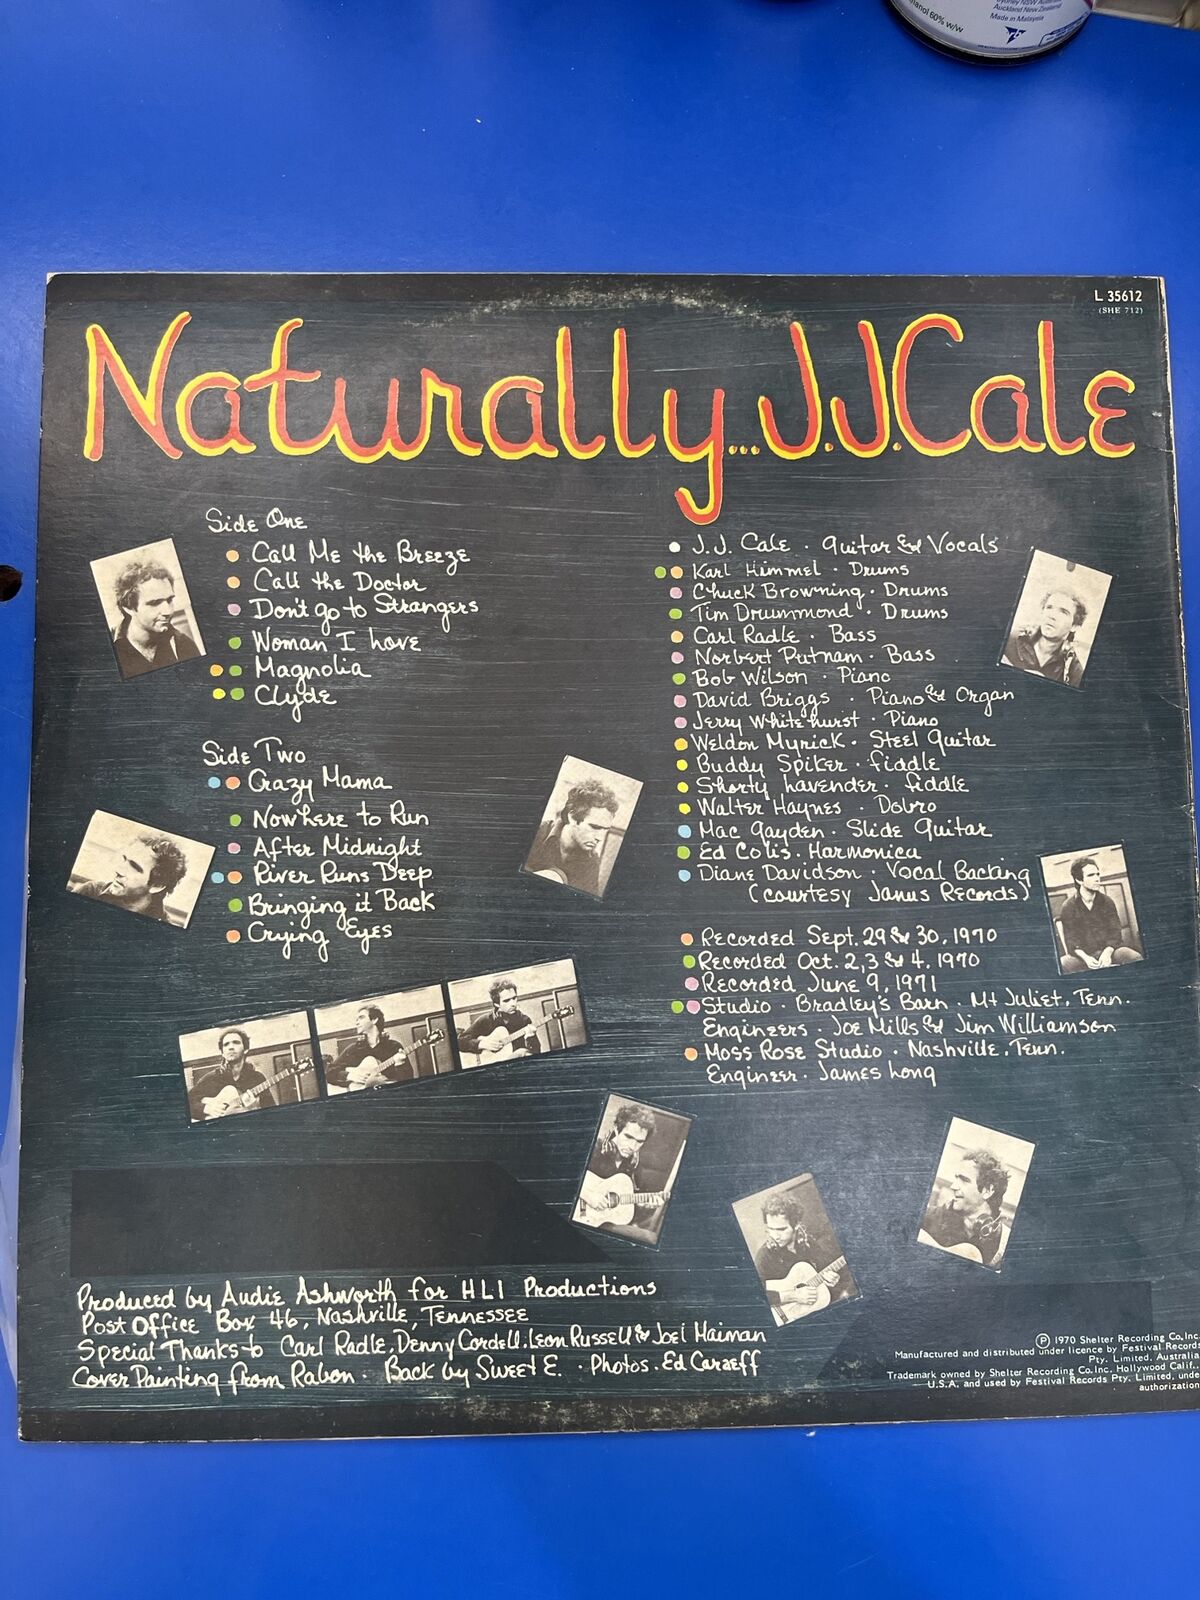 anol 60% w/w
Sydney NSW Australia
Auckland New Zealand
Made in Malaysia
L 35612
(SHE 712)
Naturally... J.J. Cale
Side One
Call Me the Breeze
Call the Doctor
Don't go to Strangers
Woman I Love
Magnolia
Clyde
Side Two
Crazy Mama
Nowhere to Run
After Midnight
River Runs Deep
Bringing it Back
Crying Eyes
J.J. Cale · Guitar & Vocals
Karl Himmel · Drums
Chuck Browning · Drums
Tim Drummond · Drums
Carl Radle · Bass
Norbert Putnam · Bass
Bob Wilson · Piano
David Briggs · Piano & Organ
Jerry Whitehurst · Piano
Weldon Myrick · Steel Guitar
Buddy Spiker · fiddle
Shorty Lavender · fiddle
Walter Haynes · Dobro
Mac Gayden · Slide Guitar
Ed Colis · Harmonica
Diane Davidson · Vocal Backing
(courtesy Janus Records)
Recorded Sept. 29 & 30, 1970
Recorded Oct. 2,3 & 4, 1970
Recorded June 9, 1971
Studio · Bradley's Barn · Mt Juliet, Tenn.
Engineers · Joe Mills & Jim Williamson
Moss Rose Studio · Nashville, Tenn.
Engineer · James Long
Produced by Audie Ashworth for HLI Productions
Post Office Box 46, Nashville, Tennessee
Special Thanks to Carl Radle, Denny Cordell, Leon Russell & Joel Maiman
Cover Painting from Rabon · Back by Sweet E. · Photos · Ed Caraeff
Ⓟ 1970 Shelter Recording Co, Inc.
Manufactured and distributed under licence by Festival Records
Pty. Limited, Australia
Trademark owned by Shelter Recording Co. Inc. Hollywood Calif.,
U.S.A. and used by Festival Records Pty. Limited, unde
authorization